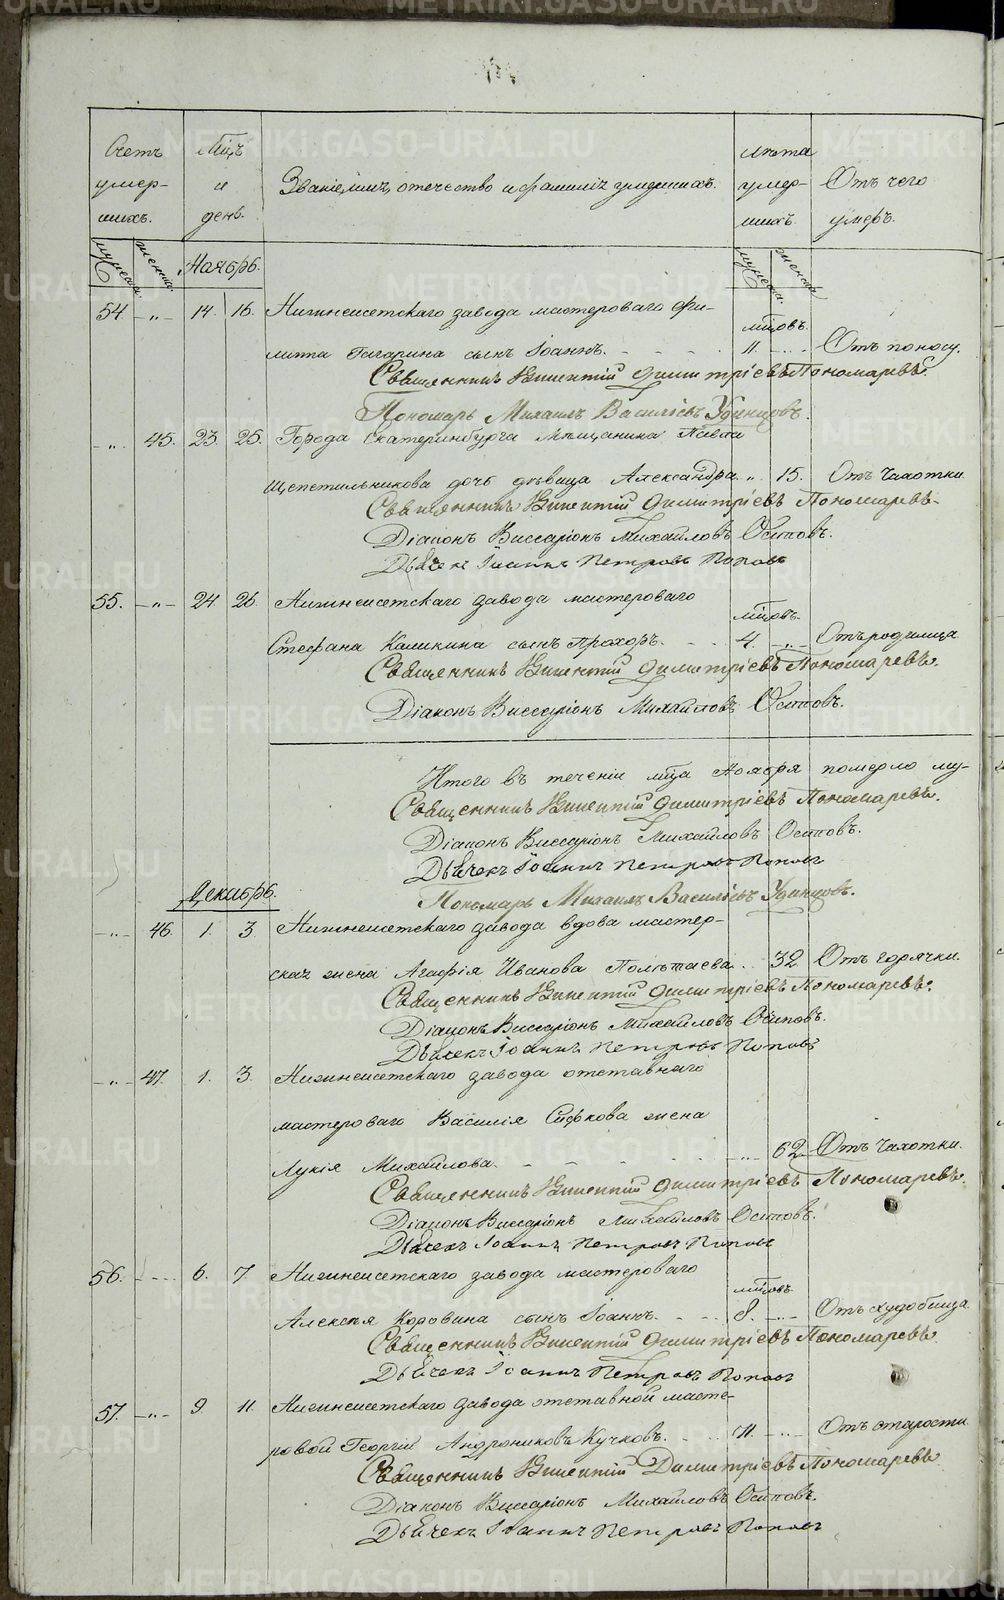 Счетъ умер- шихъ. Мц͠ъ и день. Званіе, имя, отечество и фамилія умершихъ. Лѣта умер- шихъ Отъ чего умеръ.
мужеска. женска. Ноябрь. мужеска. женска
54. -„- 14. 16. Нижнеисетскаго завода мастероваго Фи-
мцовъ.
липпа Гагарина сынъ Іоаннъ. 11. Отъ поносу.
Священникъ Викентій Димитріевъ Пономаревъ.
Пономарь Михаилъ Василіевъ Удинцовъ.
-„- 45. 23. 25. Города Екатеринбурга мѣщанина Павла
Щепетильникова дочь дѣвица Александра „ 15. Отъ чахотки
Священникъ Викентій Димитріевъ Пономаревъ.
Діаконъ Виссаріонъ Михайловъ Осиповъ.
Дьячекъ Іоаннъ Петровъ Поповъ
55. -„- 24. 26. Нижнеисетскаго завода мастероваго
мцовъ.
Стефана Калинина сынъ Прохоръ. 4. Отъ родимца
Священникъ Викентій Димитріевъ Пономаревъ.
Діаконъ Виссаріонъ Михайловъ Осиповъ.
Итого въ теченіи мца Ноября померло му-
Священникъ Викентій Димитріевъ Пономаревъ.
Діаконъ Виссаріонъ Михайловъ Осиповъ.
Дьячекъ Іоаннъ Петровъ Поповъ
Декабрь.
Пономарь Михаилъ Василіевъ Удинцовъ.
-„- 46. 1. 3. Нижнеисетскаго завода вдова мастер-
ская жена Агафія Иванова Полѣтаева. 32 Отъ горячки.
Священникъ Викентій Димитріевъ Пономаревъ.
Діаконъ Виссаріонъ Михайловъ Осиповъ.
Дьячекъ Іоаннъ Петровъ Поповъ
-„- 47. 1. 3. Нижнеисетскаго завода отставнаго
мастероваго Василія жена
Лукія Михайлова. 62 Отъ чахотки.
Священникъ Викентій Димитріевъ Пономаревъ.
Діаконъ Виссаріонъ Михайловъ Осиповъ.
Дьячекъ Іоаннъ Петровъ Поповъ
56. 6. 7 Нижнеисетскаго завода мастероваго
мцовъ
Алексѣя Коровина сынъ Іоаннъ. 8. Отъ худобища
Священникъ Викентій Димитріевъ Пономаревъ
Дьячекъ Іоаннъ Петровъ Поповъ
57. -„- 9. 11. Нижнеисетскаго завода отставной масте-
ровой Георгій Андрониковъ Кучковъ. 71. Отъ старости
Священникъ Викентій Димитріевъ Пономаревъ
Діаконъ Виссаріонъ Михайловъ Осиповъ.
Дьячекъ Іоаннъ Петровъ Поповъ
METRIKI.GASO-URAL.RU